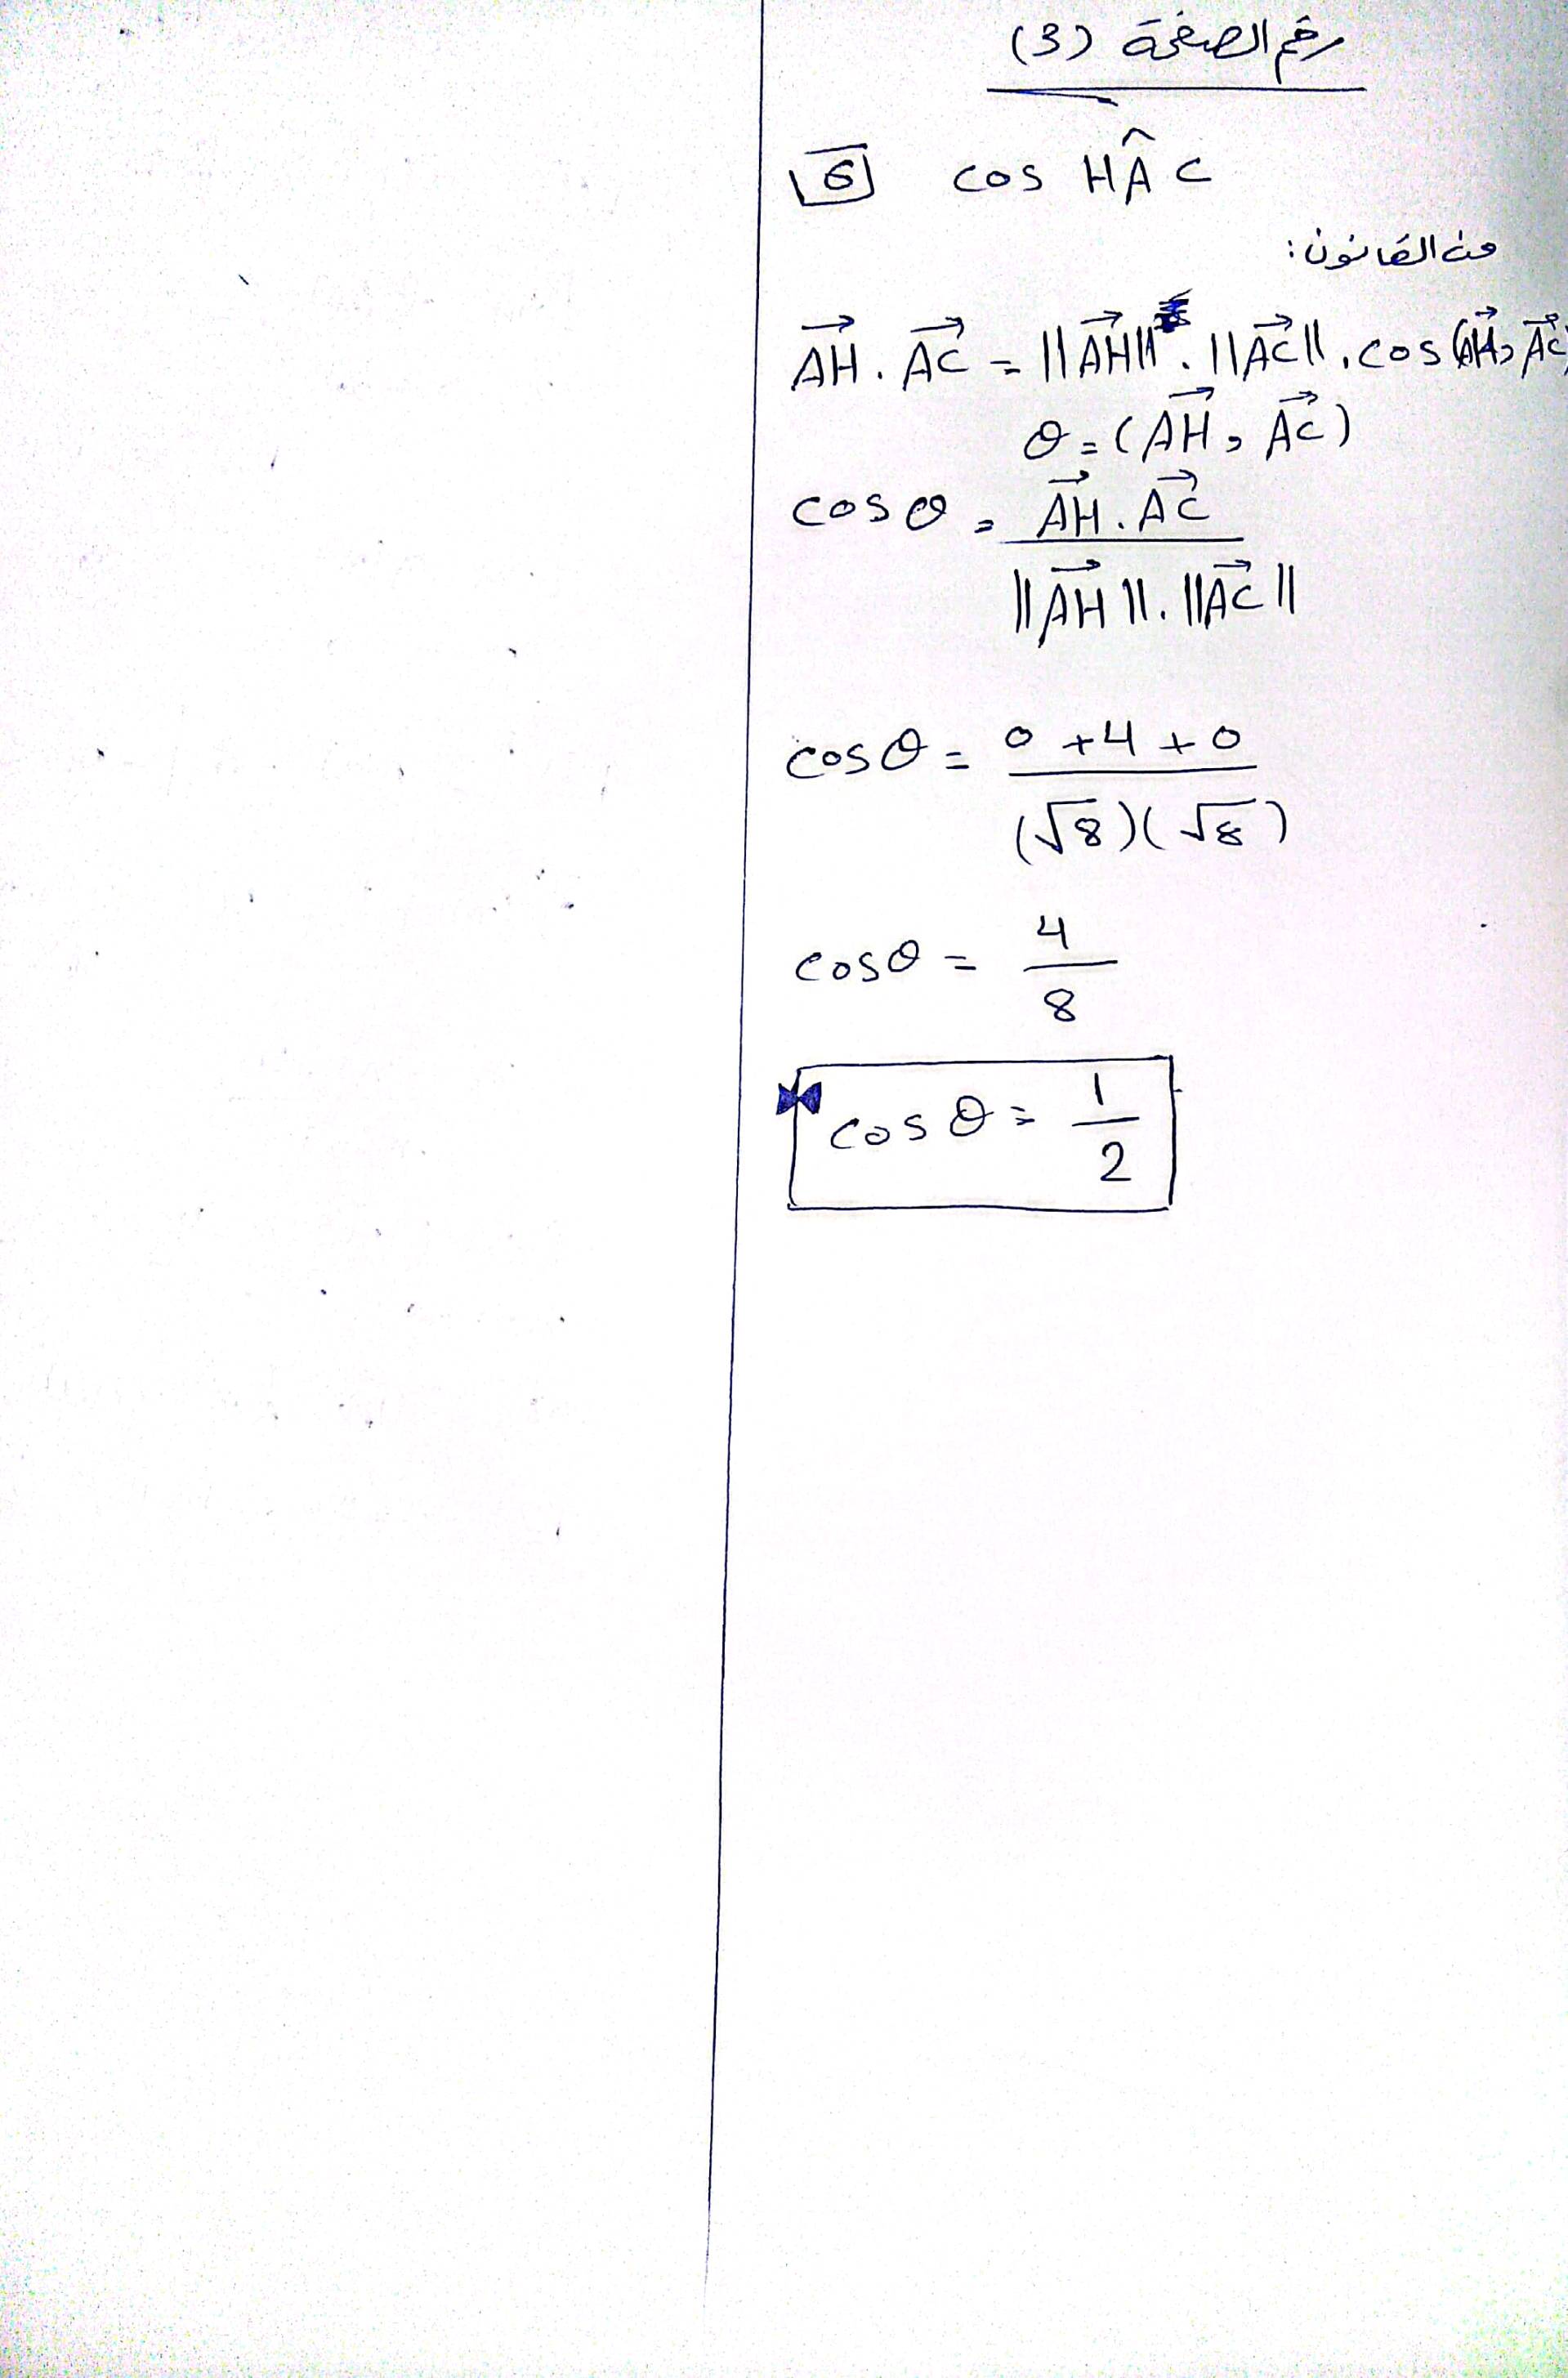 رقم الصفحة (3)
6 cos HÂC
من القانون:
AH⃗ . AC⃗ = ||AH⃗|| . ||AC⃗|| . cos (AH⃗, AC⃗)
θ = (AH⃗, AC⃗)
cos θ = AH⃗ . AC⃗
||AH⃗|| . ||AC⃗||
cos θ = 0 + 4 + 0
(√8)(√8)
cos θ = 4
8
cos θ = 1
2